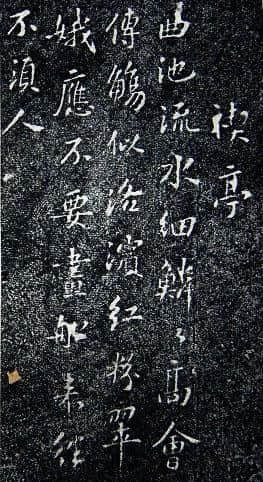 禊亭
曲池流水细鳞々高會
傳觴似洛濱紅粉翠
娥應不要畫船来往
不須人